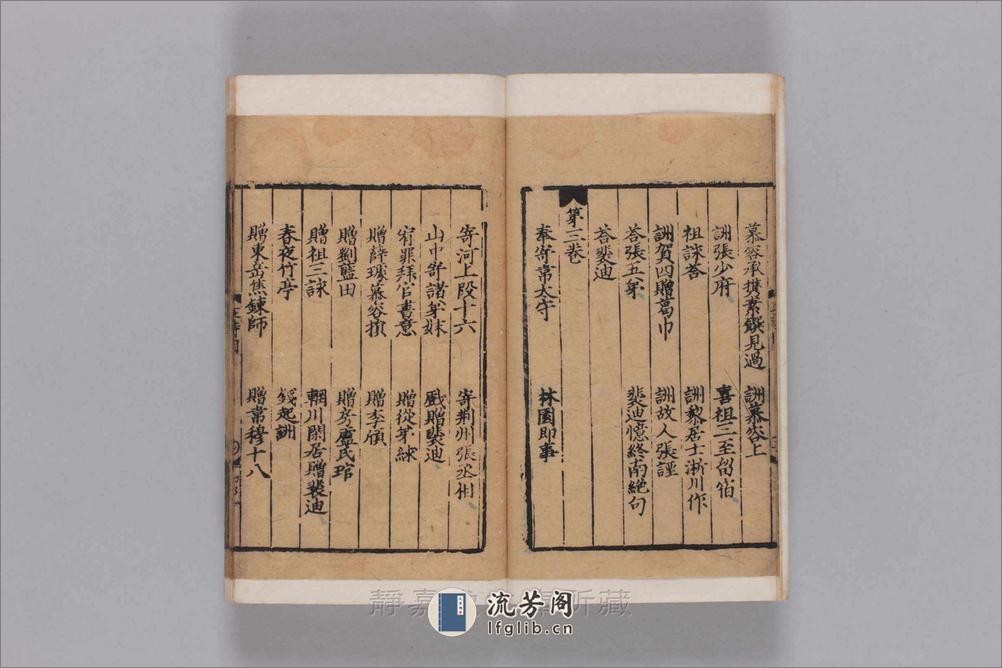 慕容承携素饌見過 詶慕容上
詶張少府 喜祖三至留宿
祖詠荅 詶黎居士淅川作
詶賀四贈葛巾 詶故人張諲
荅張五弟 裴迪憶終南絶句
荅裴迪
第三卷
奉寄韋太守 林園即事
寄河上段十六 寄荆州張丞相
山中寄諸弟妹 戲贈裴迪
宥罪拜官書意 贈從弟練
贈薛璩慕容損 贈李頎
贈劉藍田 贈房盧氏琯
贈祖三詠 輞川閑居贈裴迪
春夜竹亭 錢起詶
贈東岳焦鍊師 贈韋穆十八
靜嘉 所藏
流芳阁
lfglib.cn